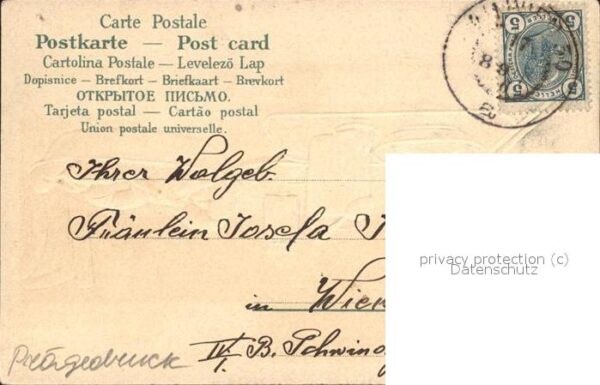 Carte Postale
Postkarte — Post card
Cartolina Postale — Levelező Lap
Dopisnice — Brefkort — Briefkaart — Brevkort
ОТКРЫТОЕ ПИСЬМО.
Tarjeta postal — Cartão postal
Union postale universelle.
5 5
HELLER
5 5
Ihrer Wolgeb.
Fräulein Josefa
privacy protection (c)
Datenschutz
in Wien
IV. B. Schwind
Prägedruck